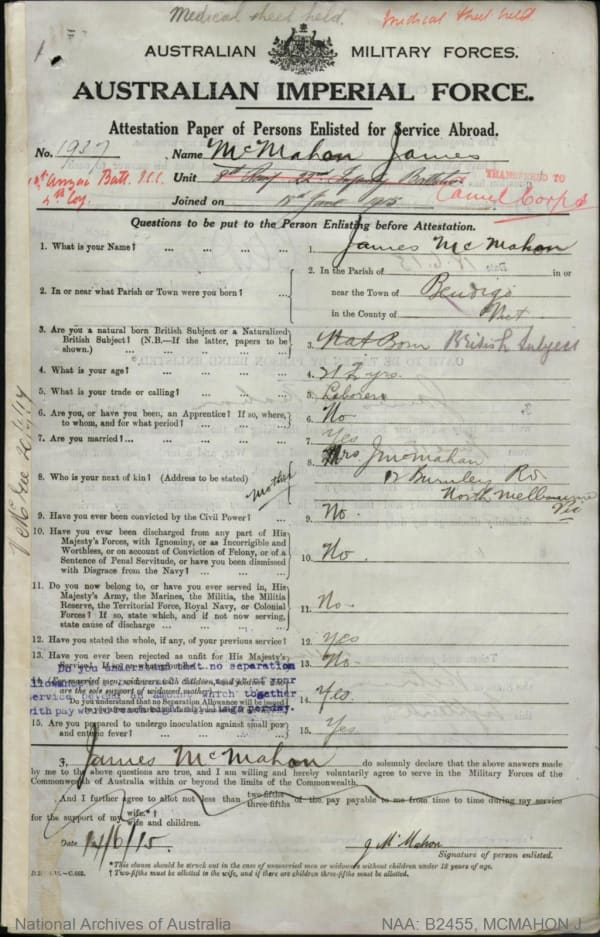 Medical sheet held.
Medical sheet held.
AUSTRALIAN MILITARY FORCES.
AUSTRALIAN IMPERIAL FORCE.
Attestation Paper of Persons Enlisted for Service Abroad.
No. 1937 Name McMahon James
Unit 8th 22nd Infantry Battalion
TRANSFERRED TO
Camel Corps
1st Anzac Batt. I.C.C.
4th Coy.
Joined on 15 June 1915
Questions to be put to the Person Enlisting before Attestation.
1. What is your Name? ... ... ... ... 1. James McMahon
2. In or near what Parish or Town were you born? ... 2. In the Parish of in or
near the Town of Bendigo
in the County of Vict
3. Are you a natural born British Subject or a Naturalized
British Subject? (N.B.—If the latter, papers to be
shown.) ... ... ... ... 3. Nat Born British Subject
4. What is your age? ... ... ... ... 4. yrs.
5. What is your trade or calling? ... ... ... 5. Laborer
6. Are you, or have you been, an Apprentice? If so, where,
to whom, and for what period? ... ... ... 6. No
7. Are you married? ... ... ... ... 7. Yes
8. Who is your next of kin? (Address to be stated) mother 8. Mrs J McMahon
12 Burnley Rd
North Melbourne
Vic
9. Have you ever been convicted by the Civil Power? ... 9. No.
10. Have you ever been discharged from any part of His
Majesty's Forces, with Ignominy, or as Incorrigible and
Worthless, or on account of Conviction of Felony, or of a
Sentence of Penal Servitude, or have you been dismissed
with Disgrace from the Navy? ... ... ... 10. No.
11. Do you now belong to, or have you ever served in, His
Majesty's Army, the Marines, the Militia, the Militia
Reserve, the Territorial Force, Royal Navy, or Colonial
Forces? If so, state which, and if not now serving,
state cause of discharge ... ... ... 11. No-
12. Have you stated the whole, if any, of your previous service? 12. Yes
13. Have you ever been rejected as unfit for His Majesty's
Service? 13. No.
Do you understand that no separation
14. (For married men, widowers with children, and
are the sole support of widowed mother)
Do you understand that no Separation Allowance will be issued
service beyond an amount which together
with pay 14. Yes.
15. Are you prepared to undergo inoculation against small pox
and enteric fever? ... ... ... ... 15. Yes.
I, James McMahon do solemnly declare that the above answers made
by me to the above questions are true, and I am willing and hereby voluntarily agree to serve in the Military Forces of the
Commonwealth of Australia within or beyond the limits of the Commonwealth.
*And I further agree to allot not less than two-fifths three-fifths of the pay payable to me from time to time during my service
for the support of my wife.*† wife and children.
Date 14/6/15. J McMahon
Signature of person enlisted.
*This clause should be struck out in the case of unmarried men or widowers without children under 18 years of age.
† Two-fifths must be allotted to the wife, and if there are children three-fifths must be allotted.
National Archives of Australia NAA: B2455, MCMAHON J